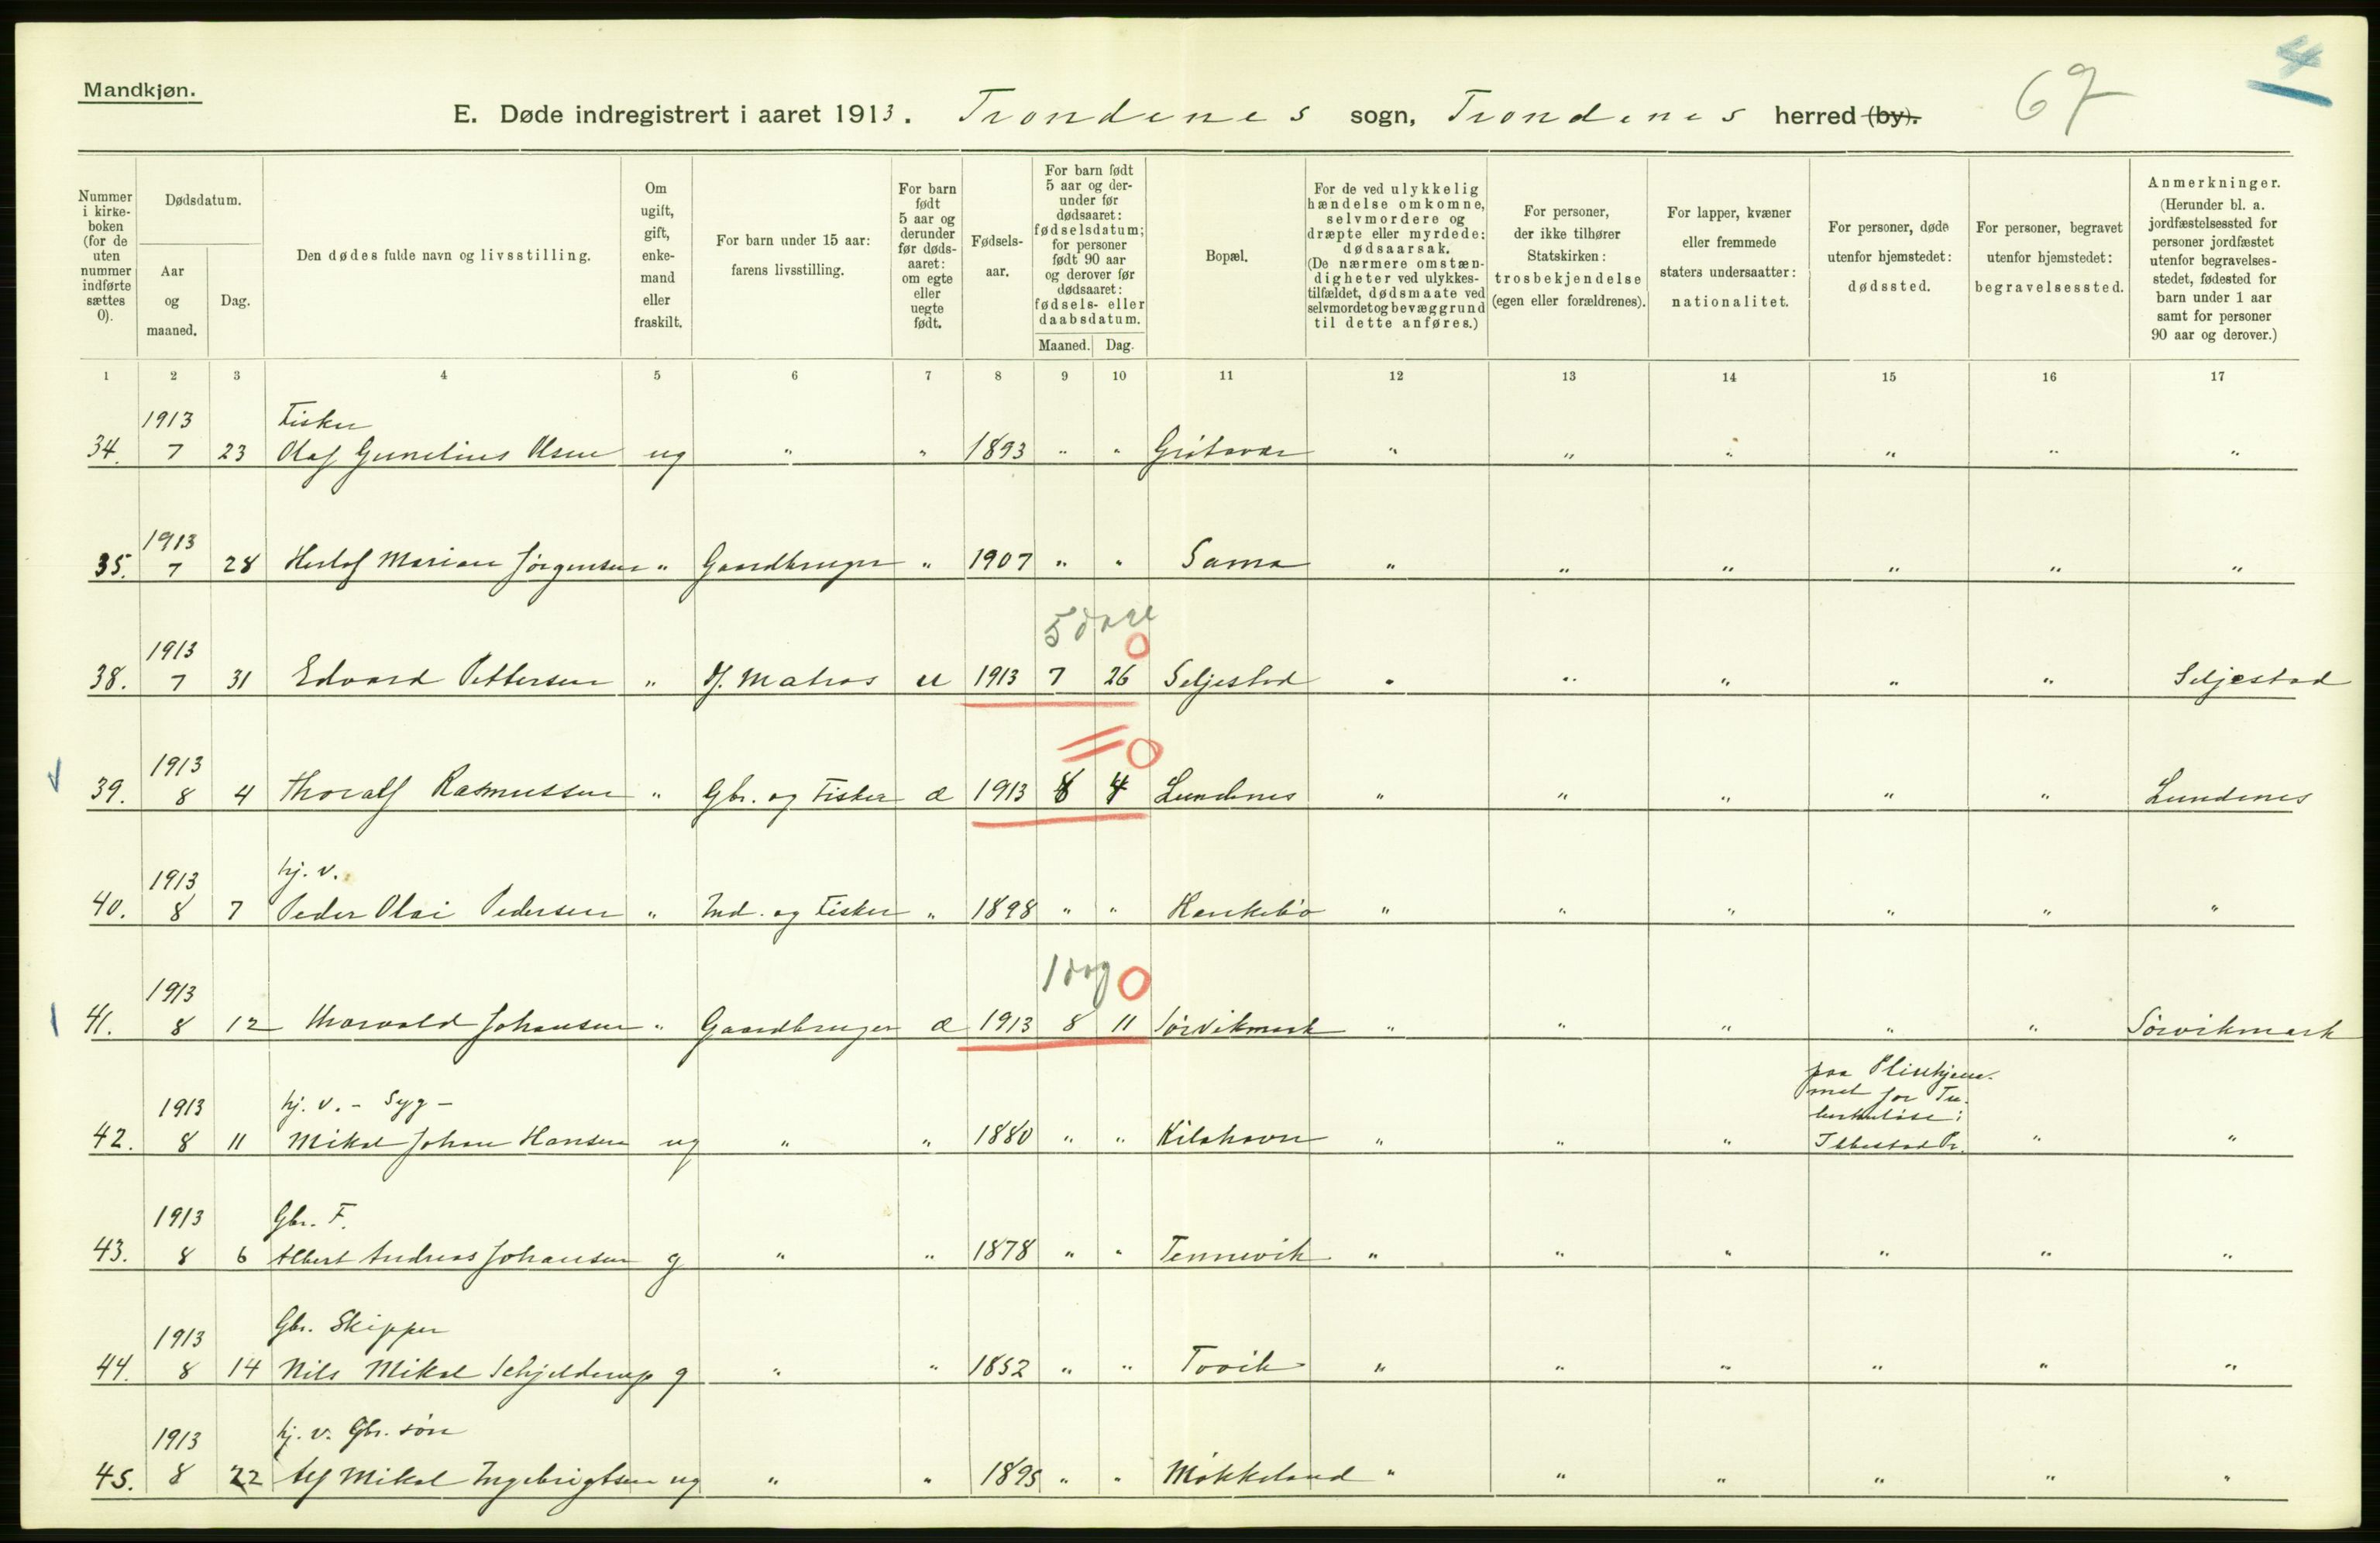 Mandkjøn.
E. Døde indregistrert i aaret 1913. Trondenes sogn, Trondenes herred (by).
67
4
Nummer i kirkeboken (for de uten nummer indførte sættes 0).
Dødsdatum.
Aar og maaned.
Dag.
Den dødes fulde navn og livsstilling.
Om ugift, gift, enkemand eller fraskilt.
For barn under 15 aar: farens livsstilling.
For barn født 5 aar og derunder før dødsaaret: om egte eller uegte født.
Fødselsaar.
For barn født 5 aar og derunder før dødsaaret: fødselsdatum; for personer født 90 aar og derover før dødsaaret: fødsels- eller daabsdatum.
Maaned. Dag.
Bopæl.
For de ved ulykkelig hændelse omkomne, selvmordere og dræpte eller myrdede: dødsaarsak. (De nærmere omstændigheter ved ulykkestilfældet, dødsmaate ved selvmordet og bevæggrund til dette anføres.)
For personer, der ikke tilhører Statskirken: trosbekjendelse (egen eller forældrenes).
For lapper, kvæner eller fremmede staters undersaatter: nationalitet.
For personer, døde utenfor hjemstedet: dødssted.
For personer, begravet utenfor hjemstedet: begravelsessted.
Anmerkninger. (Herunder bl. a. jordfæstelsessted for personer jordfæstet utenfor begravelsesstedet, fødested for barn under 1 aar samt for personer 90 aar og derover.)
1 2 3 4 5 6 7 8 9 10 11 12 13 14 15 16 17
1913 Fisker
34. 7 23 Olaf Olsen ug " " 1893 " " Grøtavær " " " " " "
1913
35. 7 28 Herlof Marian Jørgensen " Gaardbruger " 1907 " " Sama " " " " " "
5 dage 0
1913
38. 7 31 Edvard Pettersen " Matros u 1913 7 26 Seljestad " " " " " Seljestad
0
1913
39. 8 4 Thoralf Rasmussen " Gbr. og Fisker æ 1913 8 4 Lundenes " " " " " Lundenes
1913 hj. v.
40. 8 7 Peder Olai Pedersen " Ind. og Fisker " 1898 " " Kankebø " " " " " "
1 dag 0
1913
41. 8 12 Thorvald Johansen " Gaardbruger æ 1913 8 11 Sørvikmark " " " " " Sørvikmark
1913 hj. v. - Syg - paa Pleiehjemmet for Tuberkuløse i
42. 8 11 Mikal Johan Hansen ug " " 1880 " " Kilahavn " " " Ibbestad Pr. " "
1913 Gbr. F.
43. 8 6 Albert Andreas Johansen g " " 1878 " " Tennevik " " " " " "
1913 Gbr. Skipper
44. 8 14 Nils Mikal Schjelderup g " " 1852 " " Tovik " " " " " "
1913 hj. v. Gbr. søn
45. 8 22 Alf Mikal Ingebrigtsen ug " " 1895 " " Møkkeland " " " " " "